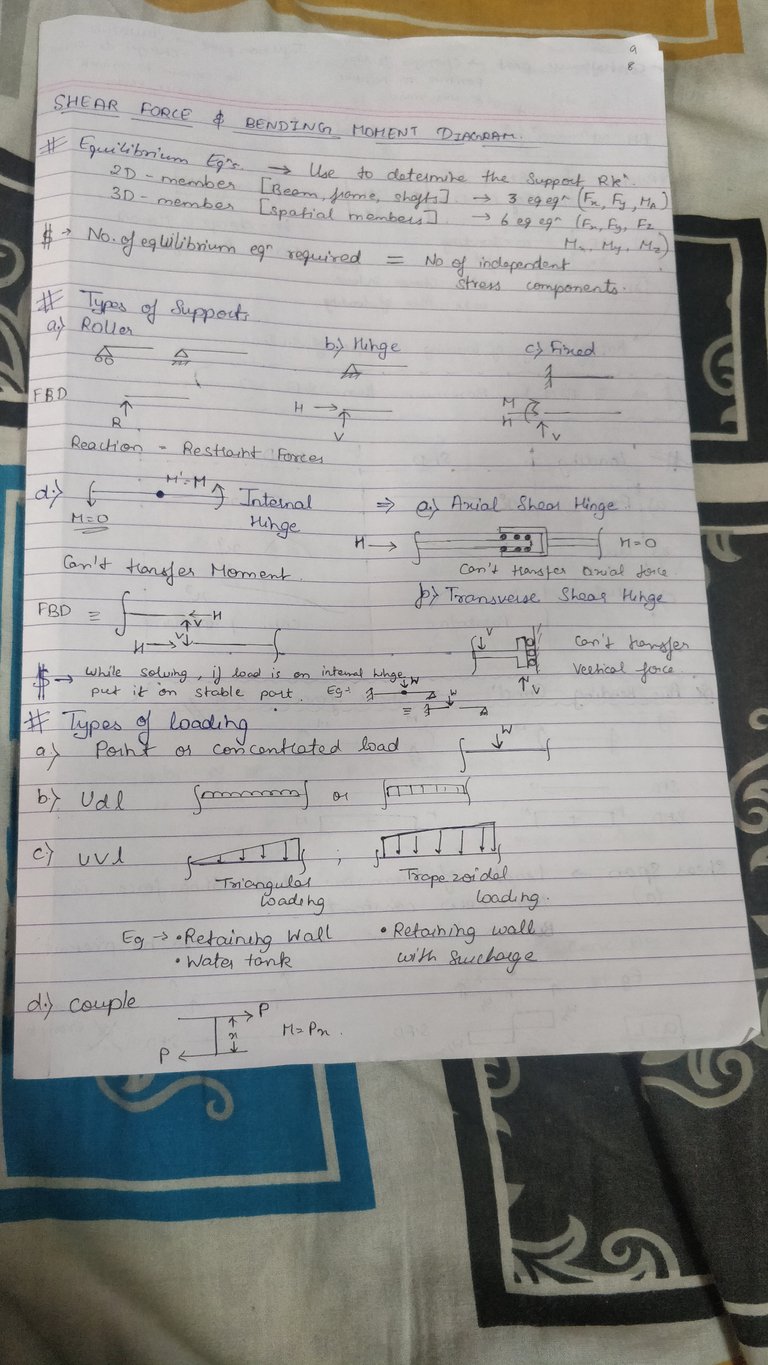 9
8
SHEAR FORCE & BENDING MOMENT DIAGRAM.
# Equilibrium Eqⁿs. → Use to determine the Support Rxⁿ.
2D - member [Beam, frame, shafts] → 3 eq eqⁿ (Fx, Fy, MA)
3D - member [Spatial members] → 6 eq eqⁿ (Fx, Fy, Fz
Mx, My, Mz)
$ → No. of equilibrium eqⁿ required = No of independent
stress components.
# Types of Supports
a.) Roller b.) Hinge c.) Fixed
FBD R H → V M H V
Reaction - Restraint Forces
d.) M=0 M'=M Internal Hinge ⇒ a.) Axial Shear Hinge
H → M=0
Can't transfer Moment. Can't transfer axial force.
b.) Transverse Shear Hinge
FBD ≡ ← H V
H → V
V V Can't transfer
vertical force.
$ → While solving, if load is on internal hinge,
put it on stable part. Eg- W ≡ W
# Types of loading
a.) Point or concentrated load W
b.) Udl or
c.) UVl ;
Triangular loading Trapezoidal loading.
Eg → • Retaining Wall • Retaining wall
• Water tank with Surcharge
d.) Couple P
x M = Px.
P